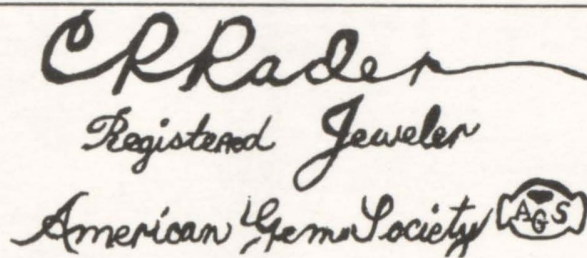 CRRader
Registered Jeweler
American Gem Society AGS